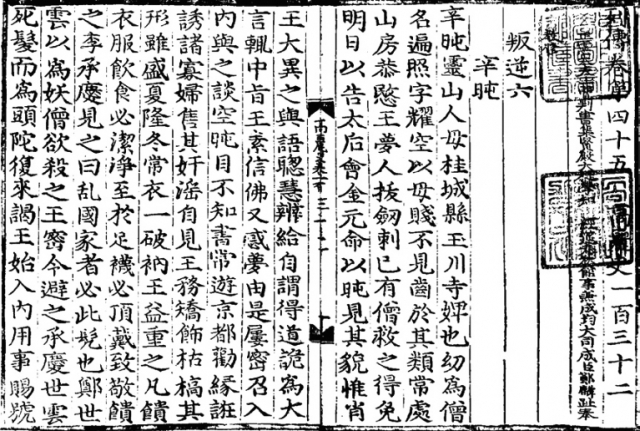 列傳卷第四十五 史一百三十二
判書集賢殿大提學知 經筵春秋館事兼成均大司成臣鄭麟趾奉
敎修
叛逆六
辛旽
辛旽靈山人母桂城縣玉川寺婢也幼爲僧
名遍照字耀空以母賤不見齒於其類常處
山房恭愍王夢人拔劒刺己有僧救之得免
明日以告太后會金元命以旽見其貌惟肖
王大異之與語聰慧辨給自謂得道詭爲大
言輒中旨王素信佛又感夢由是屢密召入
內與之談空旽目不知書常遊京都勸緣誑
誘諸寡婦售其奸淫自見王務矯飾枯槁其
形雖盛夏隆冬常衣一破衲王益重之凡饋
衣服飮食必潔淨至於足襪必頂戴致敬饋
之李承慶見之曰乱國家者必此髡也鄭世
雲以爲妖僧欲殺之王密令避之承慶世雲
死髮而爲頭陀復來謁王始入內用事賜號